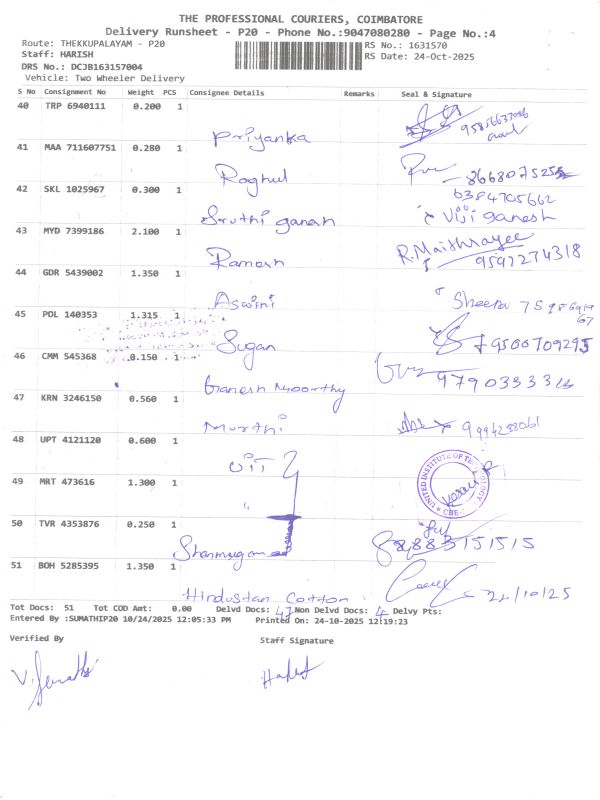 THE PROFESSIONAL COURIERS, COIMBATORE
Delivery Runsheet - P20 - Phone No.:9047080280 - Page No.:4
Route: THEKKUPALAYAM - P20
RS No.: 1631570
Staff: HARISH
RS Date: 24-Oct-2025
DRS No.: DCJB163157004
Vehicle: Two Wheeler Delivery
S No Consignment No Weight PCS Consignee Details Remarks Seal & Signature
40 TRP 6940111 0.200 1
Priyanka
41 MAA 711607751 0.280 1
Raghul 8668075255
42 SKL 1025967 0.300 1
6384705662
Sruthi ganesh Viji ganesh
43 MYD 7399186 2.100 1
R.Maithrayee
Ramesh 9597274318
44 GDR 5439002 1.350 1
Aswini Sheeba
45 POL 140353 1.315 1
Sugan 9500709295
46 CMM 545368 0.150 1
Ganesh Moorthy
47 KRN 3246150 0.560 1
Murthi 9994288061
48 UPT 4121120 0.600 1
UIT
UNITED INSTITUTE OF TECHNOLOGY
49 MRT 473616 1.300 1
50 TVR 4353876 0.250 1
Shanmugam
51 BOH 5285395 1.350 1
Hindustan Cotton 24/10/25
Tot Docs: 51 Tot COD Amt: 0.00 Delvd Docs: 47 Non Delvd Docs: 4 Delvy Pts:
Entered By :SUMATHIP20 10/24/2025 12:05:33 PM Printed On: 24-10-2025 12:19:23
Verified By Staff Signature